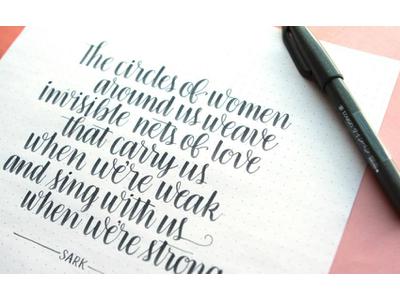 The circles of women
around us weave
invisible nets of love
that carry us
when we're weak
and sing with us
when we're strong
SARK